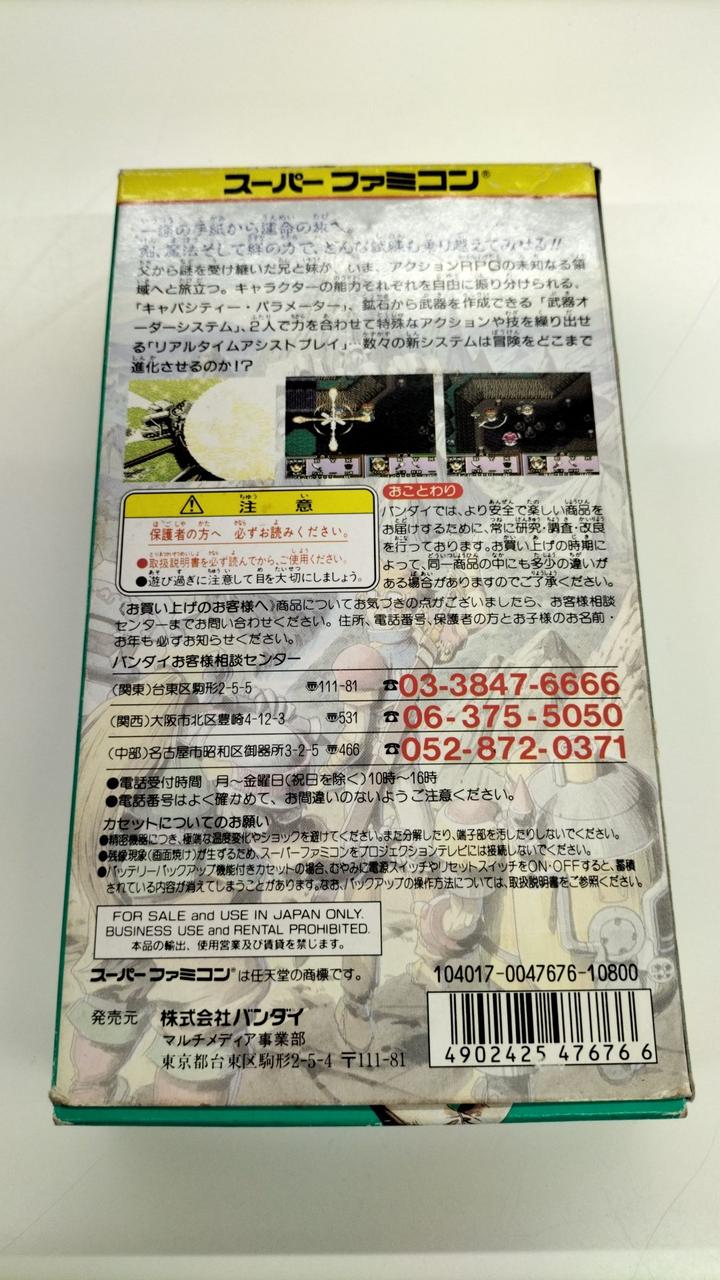 スーパーファミコン®
一通の手紙から運命の旅へ。
魔法そして絆の力で、どんな試練も乗り越えてみせる!!
父から謎を受け継いだ兄と妹が、いま、アクションRPGの未知なる領
域へと旅立つ。キャラクターの能力それぞれを自由に振り分けられる、
「キャパシティー・パラメーター」、鉱石から武器を作成できる「武器オ
ーダーシステム」、2人で力を合わせて特殊なアクションや技を繰り出せ
る「リアルタイムアシストプレイ」…数々の新システムは冒険をどこまで
進化させるのか!?
注意
保護者の方へ 必ずお読みください。
●取扱説明書を必ず読んでから、ご使用ください。
●遊び過ぎに注意して目を大切にしましょう。
おことわり
バンダイでは、より安全で楽しい商品を
お届けするために、常に研究・調査・改良
を行っております。お買い上げの時期に
よって、同一商品の中にも多少の違いが
ある場合がありますのでご了承ください。
《お買い上げのお客様へ》商品についてお気づきの点がございましたら、お客様相談
センターまでお問い合わせください。住所、電話番号、保護者の方とお子様のお名前・
お年も必ずお知らせください。
バンダイお客様相談センター
(関東)台東区駒形2-5-5 〒111-81 ☎03-3847-6666
(関西)大阪市北区豊崎4-12-3 〒531 ☎06-375-5050
(中部)名古屋市昭和区御器所3-2-5 〒466 ☎052-872-0371
●電話受付時間 月〜金曜日(祝日を除く)10時〜16時
●電話番号はよく確かめて、お間違いのないようご注意ください。
カセットについてのお願い
●精密機器につき、極端な温度変化やショックを避けてください。また分解したり、端子部を汚したりしないでください。
●残像現象(画面焼け)が生ずるため、スーパーファミコンをプロジェクションテレビには接続しないでください。
●バッテリーバックアップ機能付きカセットの場合、むやみに電源スイッチやリセットスイッチをON・OFFすると、蓄積
されている内容が消えてしまうことがあります。なお、バックアップの操作方法については、取扱説明書をご参照ください。
FOR SALE and USE IN JAPAN ONLY.
BUSINESS USE and RENTAL PROHIBITED.
本品の輸出、使用営業及び賃貸を禁じます。
スーパーファミコン®は任天堂の商標です。
104017-0047676-10800
発売元 株式会社バンダイ
マルチメディア事業部
東京都台東区駒形2-5-4 〒111-81
4902425 476766